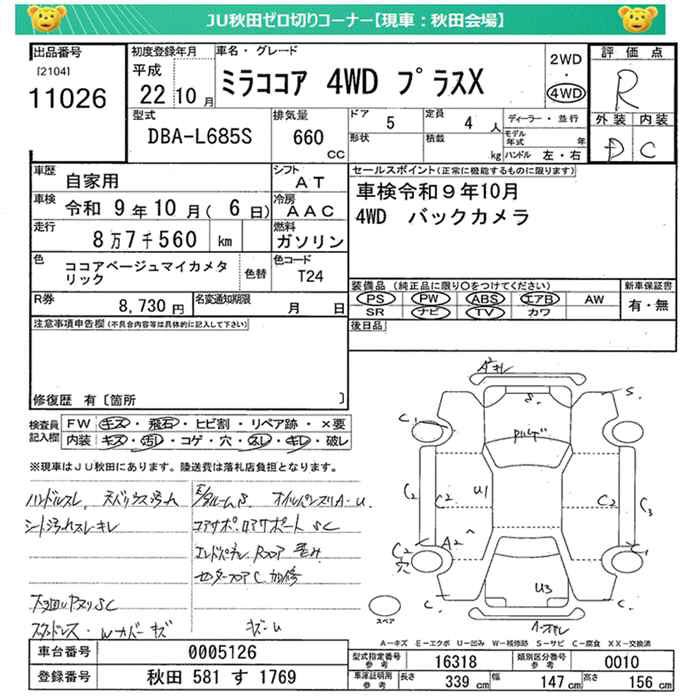 JU秋田ゼロ切りコーナー【現車：秋田会場】
出品番号
[2104]
11026
初度登録年月
平成
22 10月
車名・グレード
ミラココア 4WD プラスX
2WD
・
4WD
評価点
R
外装 内装
D C
型式
DBA-L685S
排気量
660
CC
ドア
5
定員
4 人
形状
積載
kg
ディーラー・並行
モデル
年式 年
ハンドル 左・右
車歴
自家用
シフト
AT
車検
令和 9年10月( 6日)
冷房
AAC
走行
8万7千560 km
燃料
ガソリン
色
ココアベージュマイカメタ
リック
色替
色コード
T24
R券
8,730円
名変通知期限
月 日
セールスポイント(正常に機能するものに限ります)
車検令和9年10月
4WD バックカメラ
装備品 (純正品に限り○をつけてください)
PS PW ABS エアB AW
SR ナビ TV カワ
新車保証書
有・無
後日品
注意事項申告欄(不具合内容等は具体的に記入して下さい)
修復歴 有〔箇所 〕
検査員
記入欄
FW キズ・飛石・ヒビ割・リペア跡・×要
内装 キズ・汚レ・コゲ・穴・スレ・キレ・破レ
※現車はJU秋田にあります。陸送費は落札店負担となります。
ハンドルスレ
シート汚れスレキレ
コアサポ ロアサポート SC
エンドパネル Rフロア
センターフロアC
Wカバーキズ
キズ・U
S.
S.
C₁
U1
C₂
C₂
C₂
C₃
A2
C₂
穴
C₁
U3
C.
C.
スペア
A－キズ E－エクボ U－凹み W－補修跡 S－サビ C－腐食 XX－交換済
車台番号
0005126
登録番号
秋田 581 す 1769
型式指定番号
参考
16318
類別区分番号
参考
0010
車庫証明用
参考
長さ 339 cm
幅 147 cm
高さ 156 cm